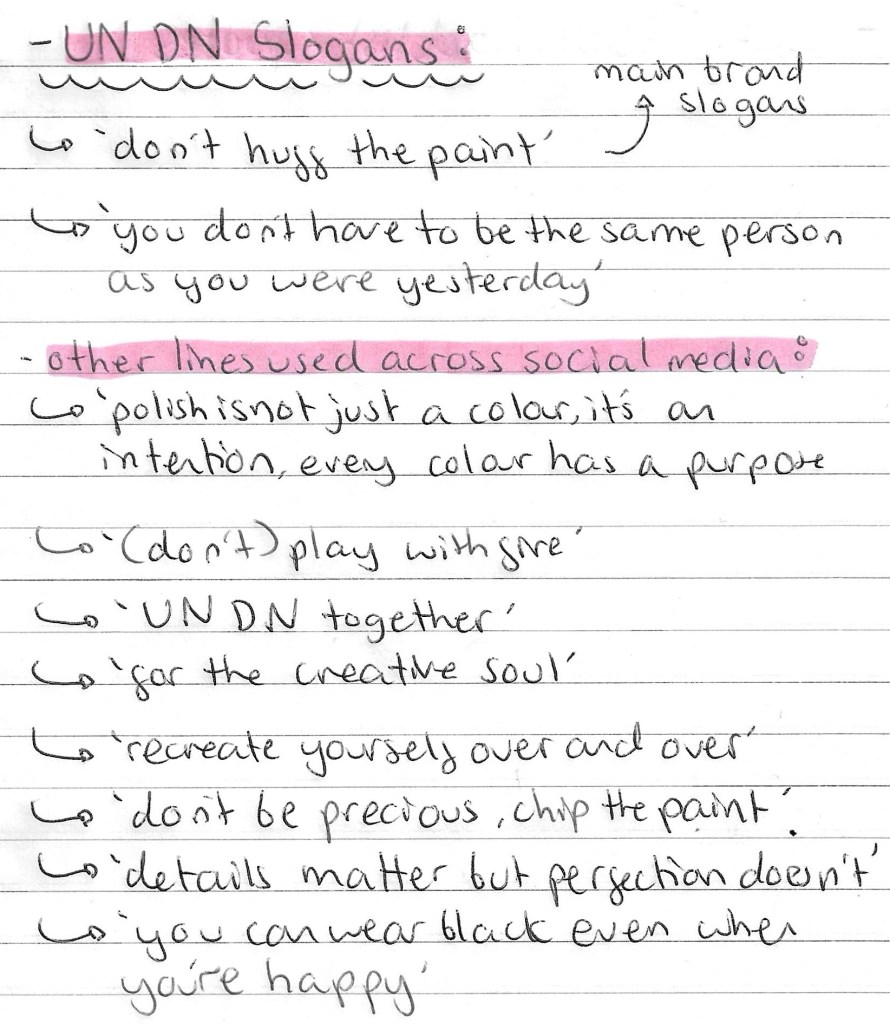 - UN DN Slogans:
main brand
slogans
↳ 'don't huff the paint'
↳ 'you don't have to be the same person
as you were yesterday'
- other lines used across social media:
↳ 'polish is not just a colour, it's an
intention, every colour has a purpose
↳ '(don't) play with fire'
↳ 'UN DN together'
↳ 'for the creative soul'
↳ 'recreate yourself over and over'
↳ 'don't be precious, chip the paint'.
↳ 'details matter but perfection doesn't'
↳ 'you can wear black even when
you're happy'